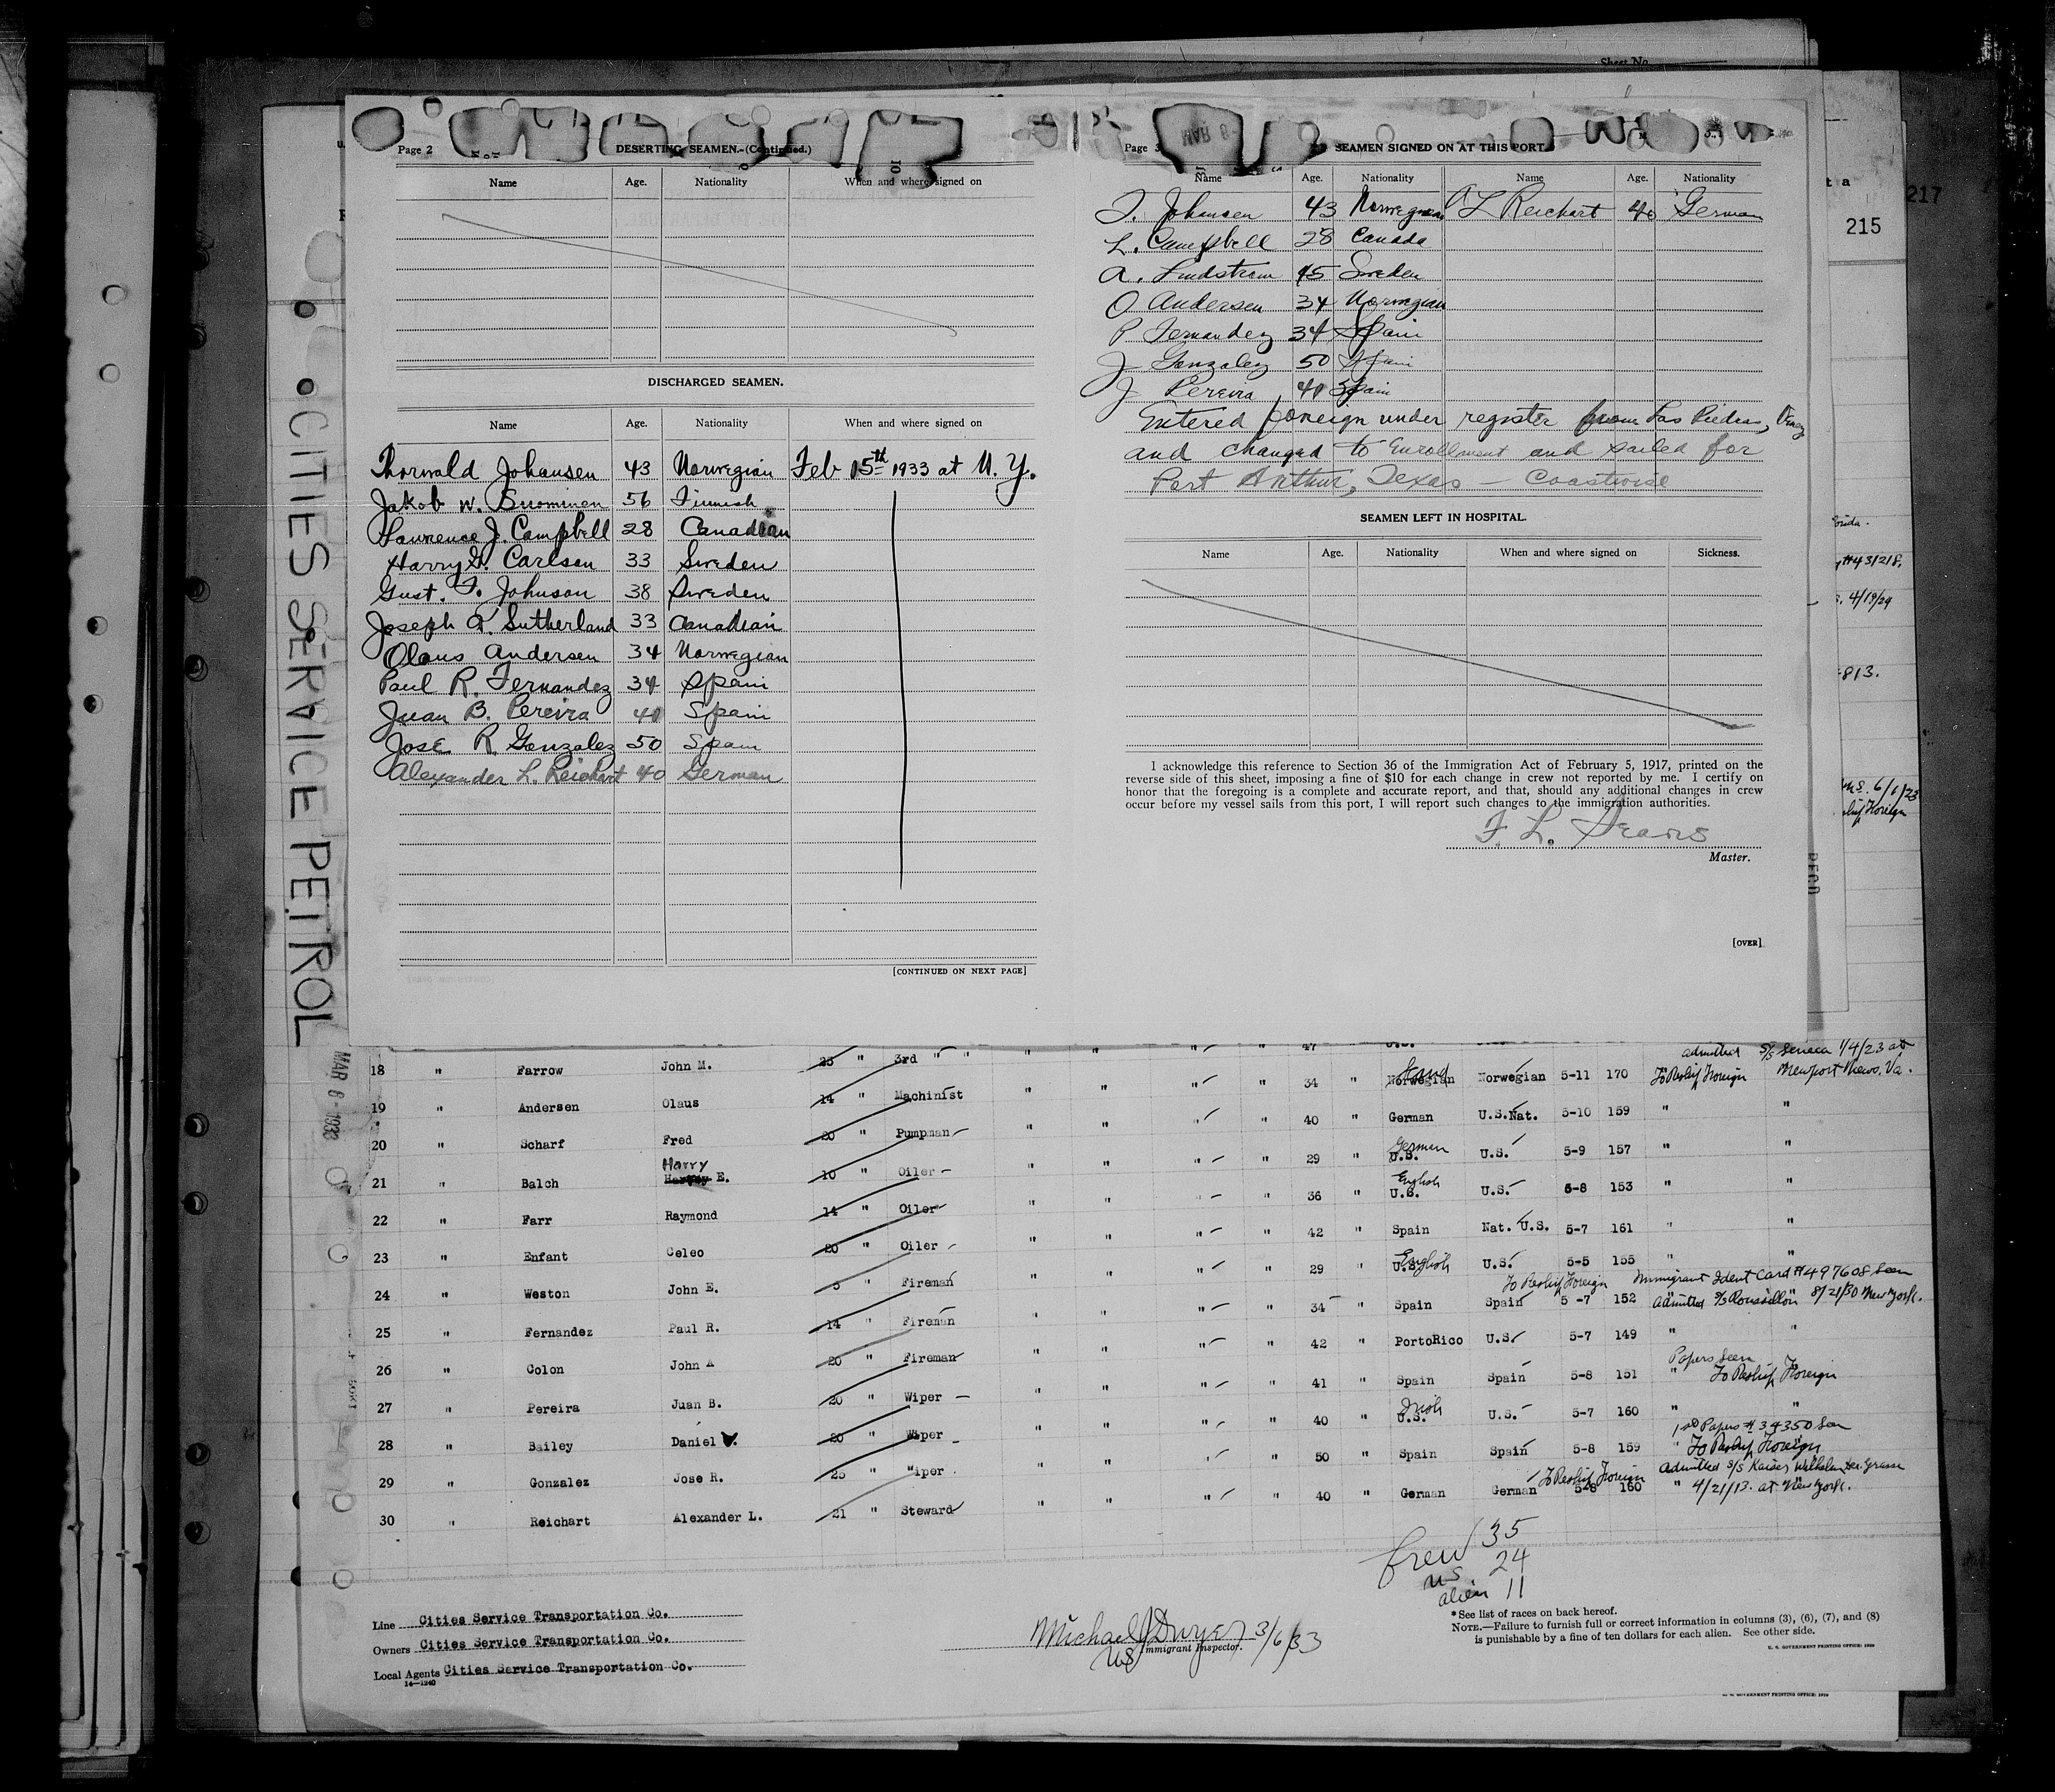 Sheet No.
217
215
CITIES SERVICE PETROL
MAR 6 - 1933
Page 2 DESERTING SEAMEN.-(Continued.)
Name Age. Nationality When and where signed on
DISCHARGED SEAMEN.
Name Age. Nationality When and where signed on
Thorwald Johansen 43 Norwegian Feb 15th 1933 at N. Y.
Jakob W. Suominen 56 Finnish
Lawrence J. Campbell 28 Canadian
Harry G. Carlson 33 Sweden
Gust. F. Johnson 38 Sweden
Joseph A. Sutherland 33 Canadian
Olaus Andersen 34 Norwegian
Paul R. Fernandez 34 Spain
Juan B. Pereira 41 Spain
Jose R Gonzalez 50 Spain
Alexander L. Reichart 40 German
[CONTINUED ON NEXT PAGE]
Page 3 SEAMEN SIGNED ON AT THIS PORT.
MAR 6
Name Age. Nationality Name Age. Nationality
T. Johansen 43 Norwegian A L Reichart 40 German
L. Campbell 28 Canada
A. Lindstrom 45 Sweden
O Andersen 34 Norwegian
P Fernandez 34 Spain
J Gonzalez 50 Spain
J Pereira 41 Spain
Entered foreign under register from Las Piedras, Venez
and changed to Enrollment and sailed for
Port Arthur, Texas - Coastwise
SEAMEN LEFT IN HOSPITAL.
Name Age. Nationality When and where signed on Sickness.
I acknowledge this reference to Section 36 of the Immigration Act of February 5, 1917, printed on the
reverse side of this sheet, imposing a fine of $10 for each change in crew not reported by me. I certify on
honor that the foregoing is a complete and accurate report, and that, should any additional changes in crew
occur before my vessel sails from this port, I will report such changes to the immigration authorities.
F. L. Sears
Master.
[OVER]
#43218.
4/19/29
813.
6/1/23
Foreign
RECD
47 U.S.
18 " Farrow John M. 23 " 3rd " " " " " " 34 " Scand Norwegian Norwegian 5-11 170 To Reship Foreign admitted S/S Seneca 1/4/23 at Newport News, Va.
19 " Andersen Olaus 14 " Machinist " " " " 40 " German U.S.Nat. 5-10 159 " "
20 " Scharf Fred 20 " Pumpman " " " " 29 " German U.S. U.S. 5-9 157 " "
21 " Balch Harry Harvey E. 10 " Oiler " " " " 36 " English U.S. U.S. 5-8 153 " "
22 " Farr Raymond 14 " Oiler " " " " 42 " Spain Nat. U.S. 5-7 161 " "
23 " Enfant Celeo 20 " Oiler " " " " 29 " English U.S. U.S. 5-5 155 " "
24 " Weston John E. 5 " Fireman " " " " 34 " Spain Spain 5-7 152 To Reship Foreign Immigrant Ident Card #497608 seen admitted S/S Roussillon 8/21/30 New York.
25 " Fernandez Paul R. 14 " Fireman " " " " 42 " PortoRico U.S. 5-7 149 " "
26 " Colon John A 20 " Fireman " " " " 41 " Spain Spain 5-8 151 Papers seen " To Reship Foreign
27 " Pereira Juan B. 20 " Wiper " " " " 40 " Irish U.S. U.S. 5-7 160 " "
28 " Bailey Daniel 20 " Wiper " " " " 50 " Spain Spain 5-8 159 1st Papers #34350 Seen " To Reship Foreign
29 " Gonzalez Jose R. 25 " Wiper " " " " 40 " German German 5-8 160 To Reship Foreign admitted S/S Kaiser Wilhelm der Grosse " 4/21/13. at New York.
30 " Reichart Alexander L. 21 " Steward
Crew 35
US 24
alien 11
Line Cities Service Transportation Co.
Owners Cities Service Transportation Co.
Local Agents Cities Service Transportation Co.
14-1240
Michael J Dwyer 3/6/33
US Immigrant Inspector.
*See list of races on back hereof.
NOTE.—Failure to furnish full or correct information in columns (3), (6), (7), and (8)
is punishable by a fine of ten dollars for each alien. See other side.
U. S. GOVERNMENT PRINTING OFFICE: 1929
U. S. GOVERNMENT PRINTING OFFICE: 1929